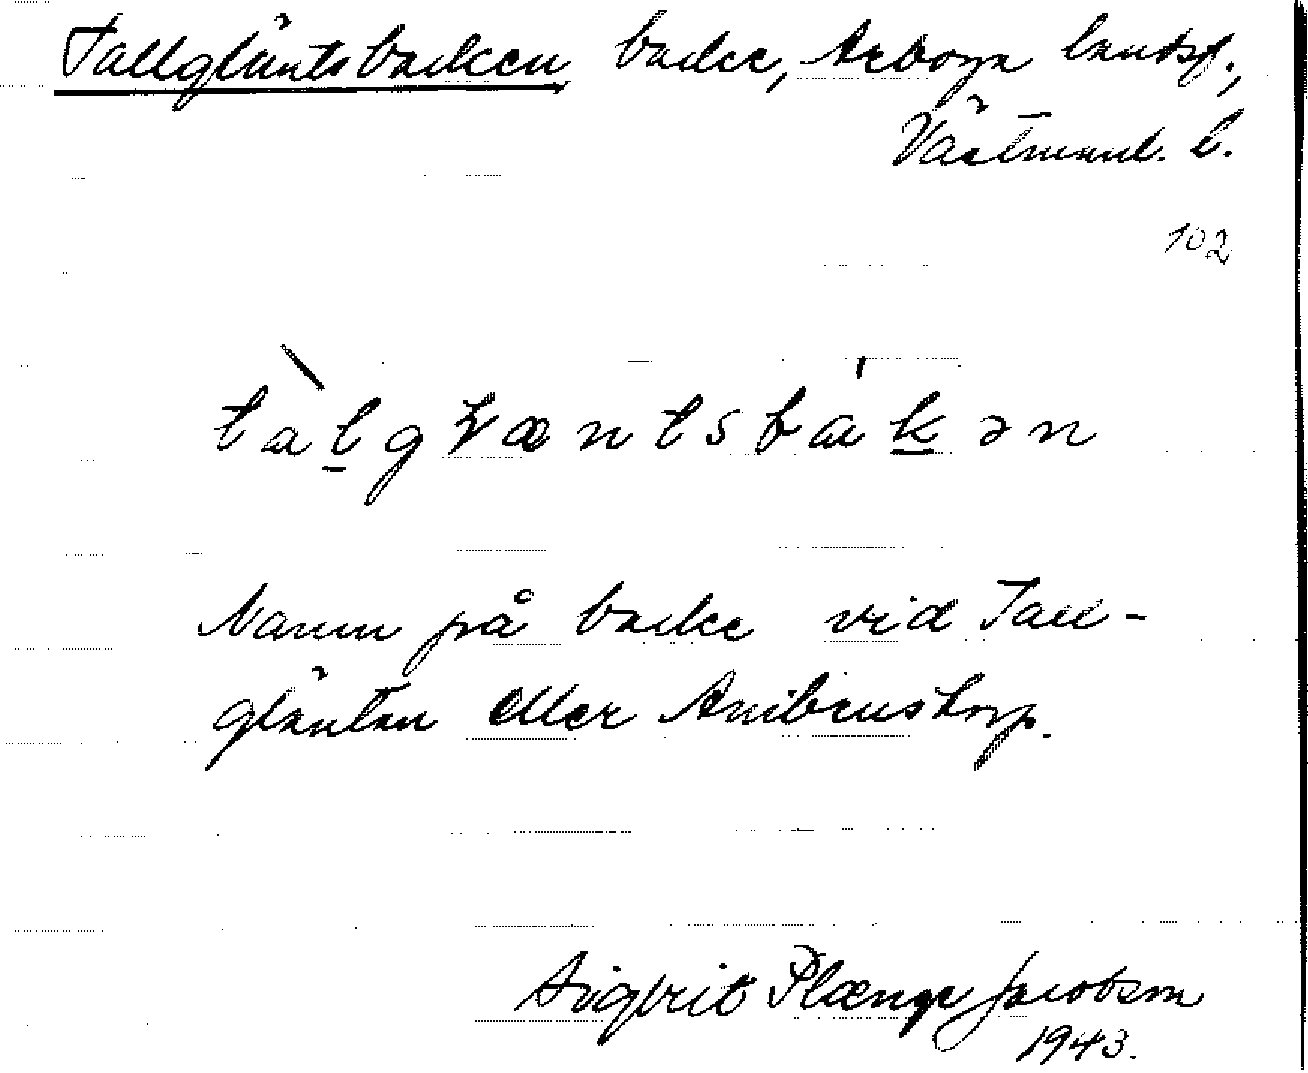 Tallgläntsbacken, backe, Arboga landsf.,
Västmanl. l.
102
tàlgɫæntsbákən
Namn på backe vid Tall-
gläntan eller Anibenstorp.
Sigbrit Plænge Jacobson
1943.